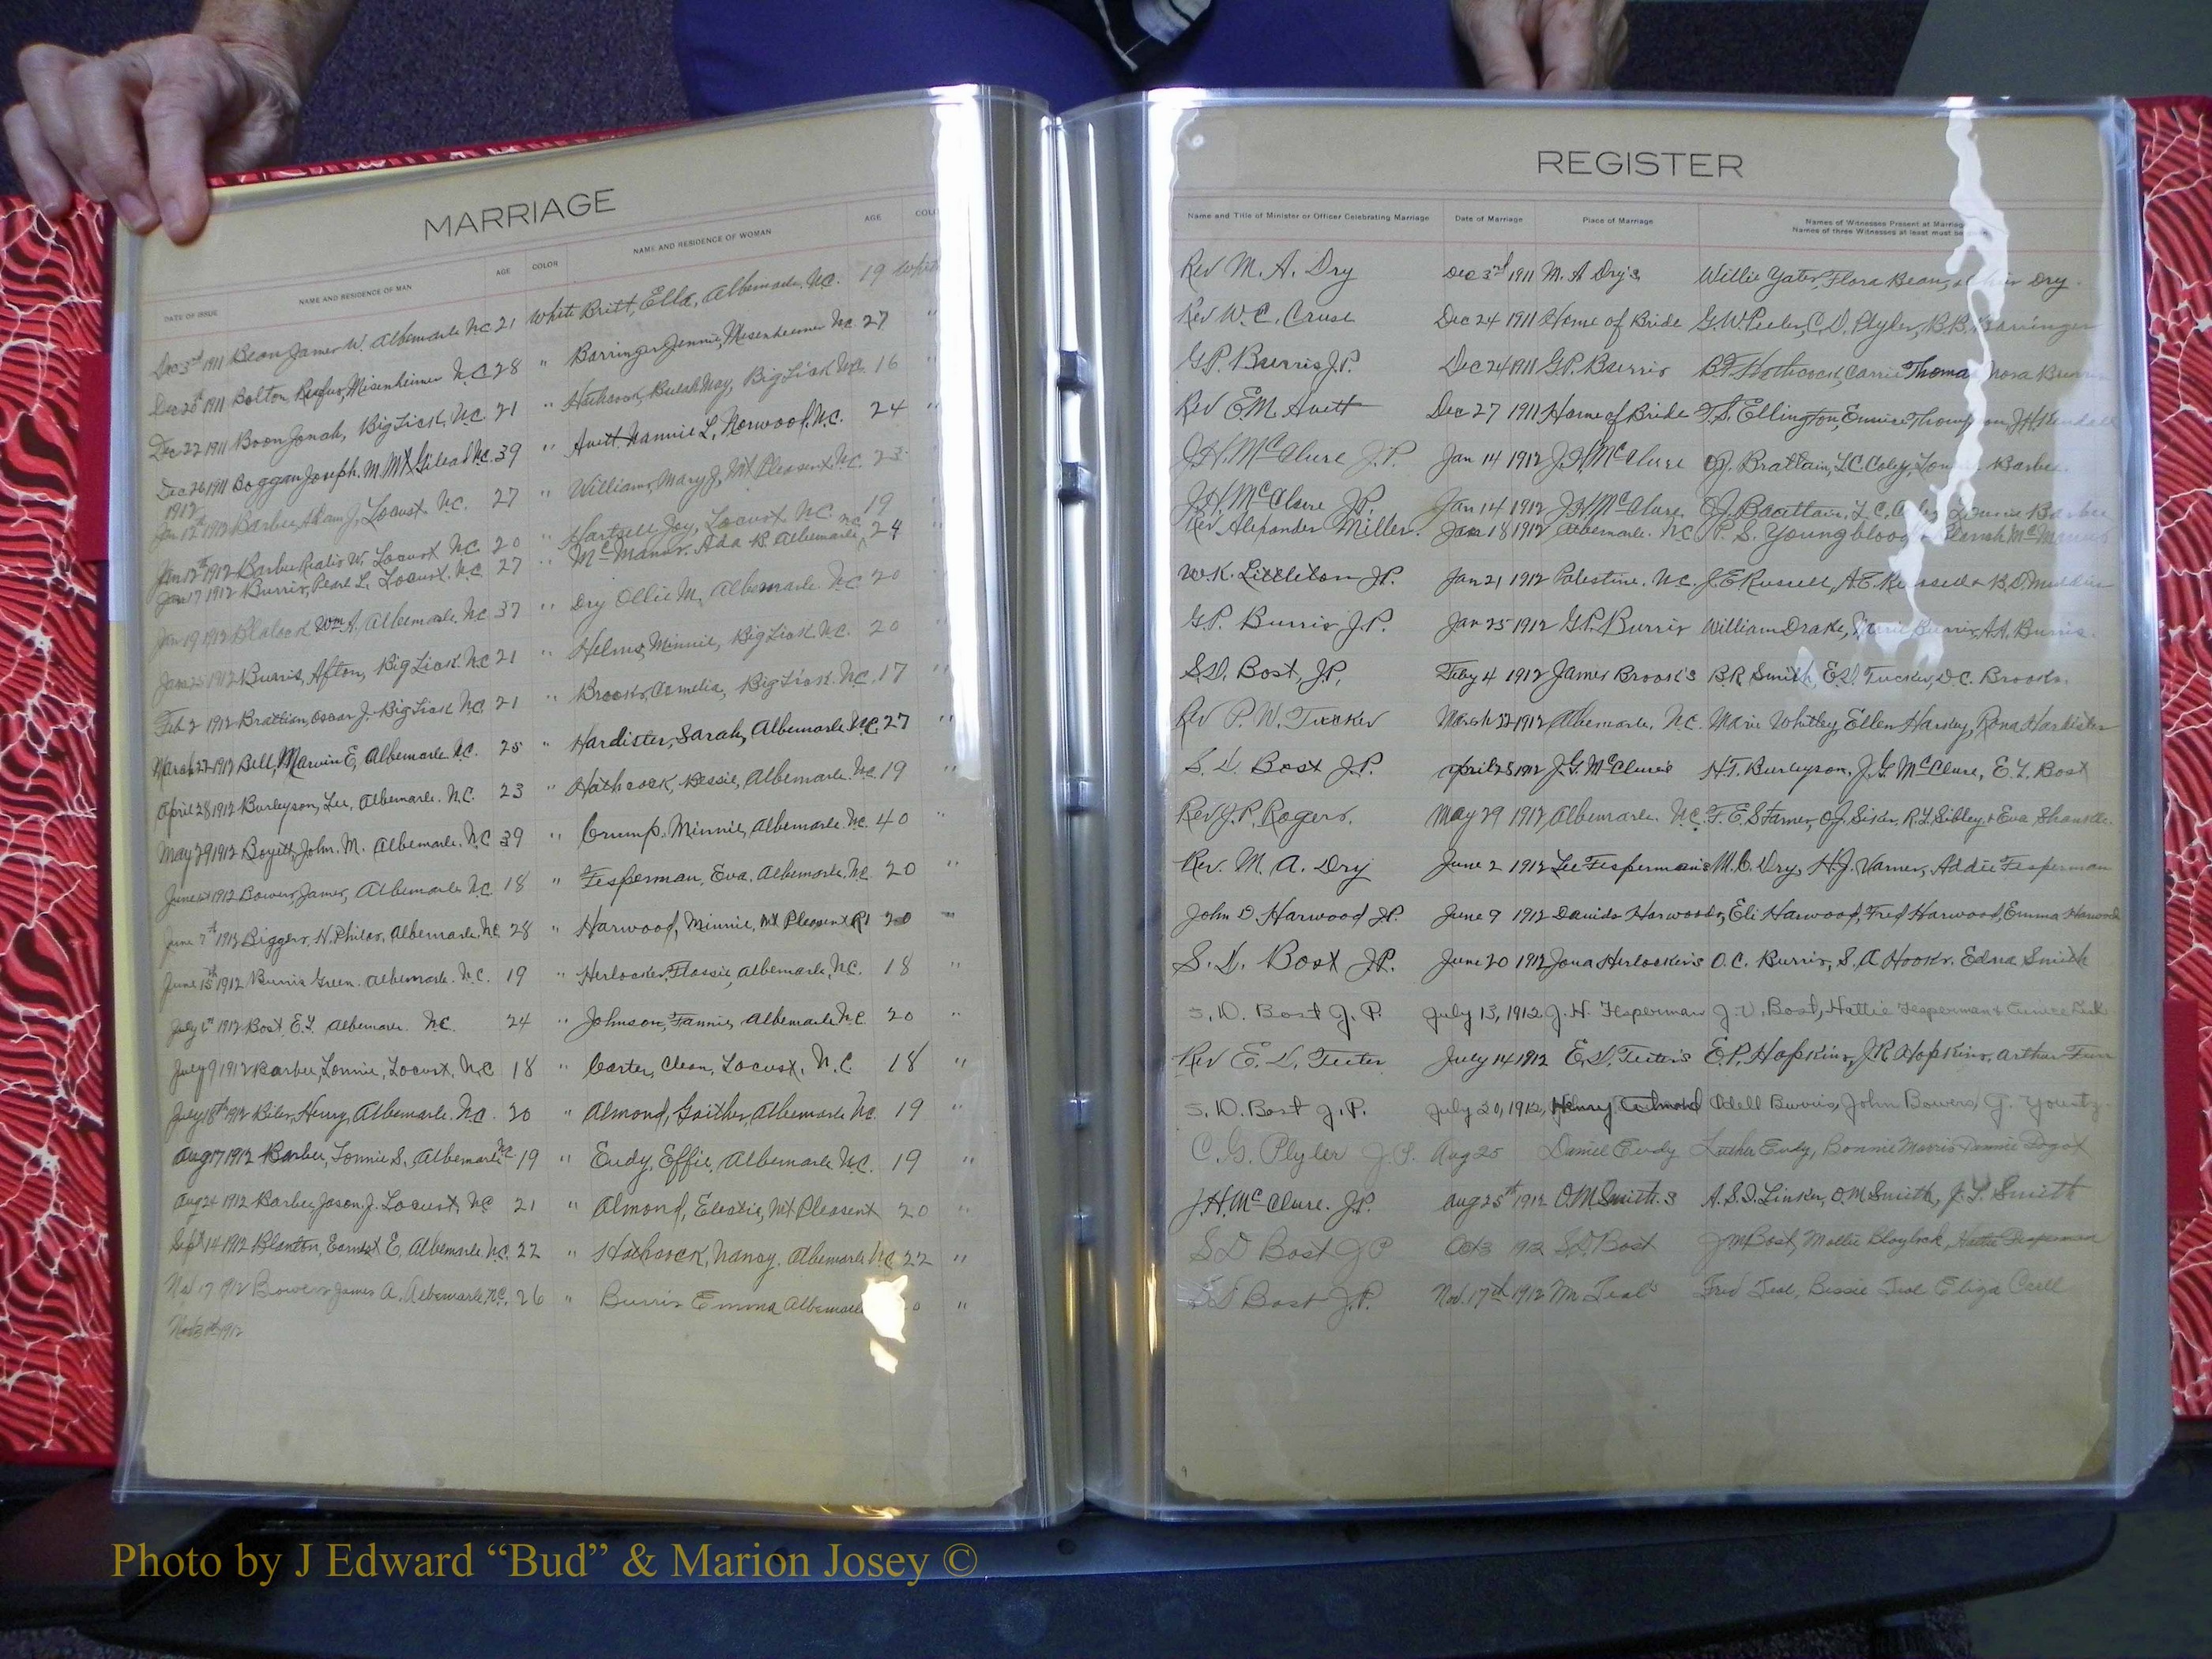 MARRIAGE
DATE OF ISSUE NAME AND RESIDENCE OF MAN AGE COLOR NAME AND RESIDENCE OF WOMAN AGE
Dec 3rd 1911 Bean James W. Albemarle N.C. 21 White Britt, Ella, Albemarle, N.C. 19 White
Dec 20th 1911 Bolton, Rufus, Misenheimer N.C. 28 " Barringer Jennie, Misenheimer N.C. 27 "
Dec 22 1911 Boon Jonah, Big Lick, N.C. 21 " Hathcock, Beulah May, Big Lick N.C. 16 "
Dec 26 1911 Boggan Joseph. M. Mt Gilead N.C. 39 " Avett Nannie L, Norwood, N.C. 24 "
1912
Jan 12th 1912 Barbee, Adam J, Locust N.C. 27 " Williams, Mary J, Mt Pleasant, N.C. 23 "
Jan 12th 1912 Barbee W. Locust N.C. 20 " Hartsell Joy, Locust N.C. 19 "
Jan 17 1912 Burris, Pearl L. Locust. N.C. 27 " McManus. Ada R. Albemarle, N.C. 24 "
Jan 19 1912 Blalock Wm A, Albemarle N.C. 37 " Dry Ollie M, Albemarle. N.C. 20
Jan 25 1912 Burris, Afton, Big Lick N.C. 21 " Helms, Minnie, Big Lick N.C. 20 "
Feb 2 1912 Brattian, Oscar J. Big Lick N.C. 21 " Brooks, Big Lick. N.C. 17 "
March 22 1912 Bell, Marvin E, Albemarle N.C. 25 " Hardister, Sarah, Albemarle N.C. 27 "
April 28 1912 Burleyson, Lee, Albemarle. N.C. 23 " Hathcock, Bessie, Albemarle N.C. 19 "
May 29 1912 Boyett, John. M. Albemarle. N.C 39 " Crump, Minnie, Albemarle N.C. 40 "
June 1912 Bowers James, Albemarle N.C. 18 " Fesperman, Eva. Albemarle N.C. 20 "
June 7th 1912 Biggers, N. Philas, Albemarle N.C. 28 " Harwood, Minnie, Mt Pleasant R1 20 "
June 15th 1912 Burris Green. Albemarle. N.C. 19 " Herlocker, Flossie, Albemarle, N.C. 18 "
July 1912 Bost, E.L. Albemarle N.C. 24 " Johnson, Fannie, Albemarle N.C. 20 "
July 9 1912 Barbee, Lonnie, Locust, N.C 18 " Carter, Cleon, Locust, N.C. 18 "
July 18th 1912 Biles, Henry, Albemarle. N.C. 20 " Almond, Gaither, Albemarle N.C. 19 "
Aug 17 1912 Barbee, Lonnie S., Albemarle N.C. 19 " Eudy, Effie, Albemarle N.C. 19 "
Aug 24 1912 Barbee, Jason J. Locust, N.C 21 " Almond, Electie, Mt Pleasant 20 "
Sept 14 1912 Blanton, Earnest E, Albemarle N.C. 22 " Hathcock, Nancy, Albemarle N.C 22 "
Nov 17 1912 Bowers James A. Albemarle, N.C. 26 " Burris Emma Albemarle "
REGISTER
Name and Title of Minister or Officer Celebrating Marriage Date of Marriage Place of Marriage Names of Witnesses Present at Marriage
Names of three Witnesses at least must be
Rev M. A. Dry Dec 3rd 1911 M. A Dry's Willie Yates, Flora Bean, Dry.
Rev W. C. Cruse Dec 24 1911 Home of Bride G.W. Peeler, C.D. Plyler, B.B. Barringer
G.P. Burris J.P. Dec 24 1911 G.P. Burris B.F. Hathcock, Carrie Thomas Nora Burris
Rev E.M. Avett Dec 27 1911 Home of Bride F.S. Ellington, Eunice Thompson, J.H. Kendall
J.H. McClure J.P. Jan 14 1912 J.H. McClure O.J. Brattain, L.C. Coley, Barbee
J.H. McClure J.P. Jan 14 1912 J.H. McClure O.J. Brattain, L.C. Coley Lonnie Barbee
Rev. Alexander Miller. Jan 18 1912 Albemarle. N.C P. S. Youngblood McManus
W.K. Littleton J.P. Jan 21 1912 Palestine. N.C. J.E. Russell, A.E.
G.P. Burris J.P. Jan 25 1912 G.P. Burris William Drake, Burris, A.A. Burris.
S.D. Bost, J.P. Feby 4 1912 James Brooks's B.R. Smith, E.D. Tucker, D.C. Brooks.
Rev P. W. Tucker March 22 1912 Albemarle, N.C. Marie Whitley, Ellen Harkey, Rona Hardister
S. D. Bost J.P. April 28 1912 J.G. McClure's H.T. Burleyson, J.G. McClure, E.L. Bost
Rev J.P. Rogers. May 29 1912 Albemarle. N.C. F. E. Starnes, O.J. Sikes, R.L. Sibley, + Eva
Rev. M. A. Dry June 2 1912 Lee Fesperman's M.C. Dry, H.J. Varner, Addie Fesperman
John D Harwood J.P. June 9 1912 Davids Harwoods, Eli Harwood, Fred Harwood, Emma Harwood
S. D. Bost J.P. June 20 1912 Herlocker's O.C. Burris, S. A Hooks. Edna Smith
S. D. Bost J. P. July 13, 1912 J. H. Fesperman J. D. Bost, Hattie Fesperman +
Rev E. D. Teeter July 14 1912 E.D. Teeter's E.P. Hopkins, J.R. Hopkins, Arthur Furr
S. D. Bost J. P. July 20, 1912, Henry Almond Odell Burris, John Bowers, J. Yountz
C. G. Plyler J.P. Aug 25 Daniel Eudy Luther Eudy, Bonnie Morris
J.H. McClure. J.P. Aug 25th 1912 O.M. Smith.s A.S.D. Linker, O.M Smith, J. L. Smith
S D Bost J P Oct 3 1912 S.D. Bost J M Bost, Mollie Blaylock, Hattie Fesperman
S D Bost J.P. Nov. 17th 1912 M Teal's Fred Teal, Bessie Teal Eliza Crell
9
Photo by J Edward “Bud” & Marion Josey ©